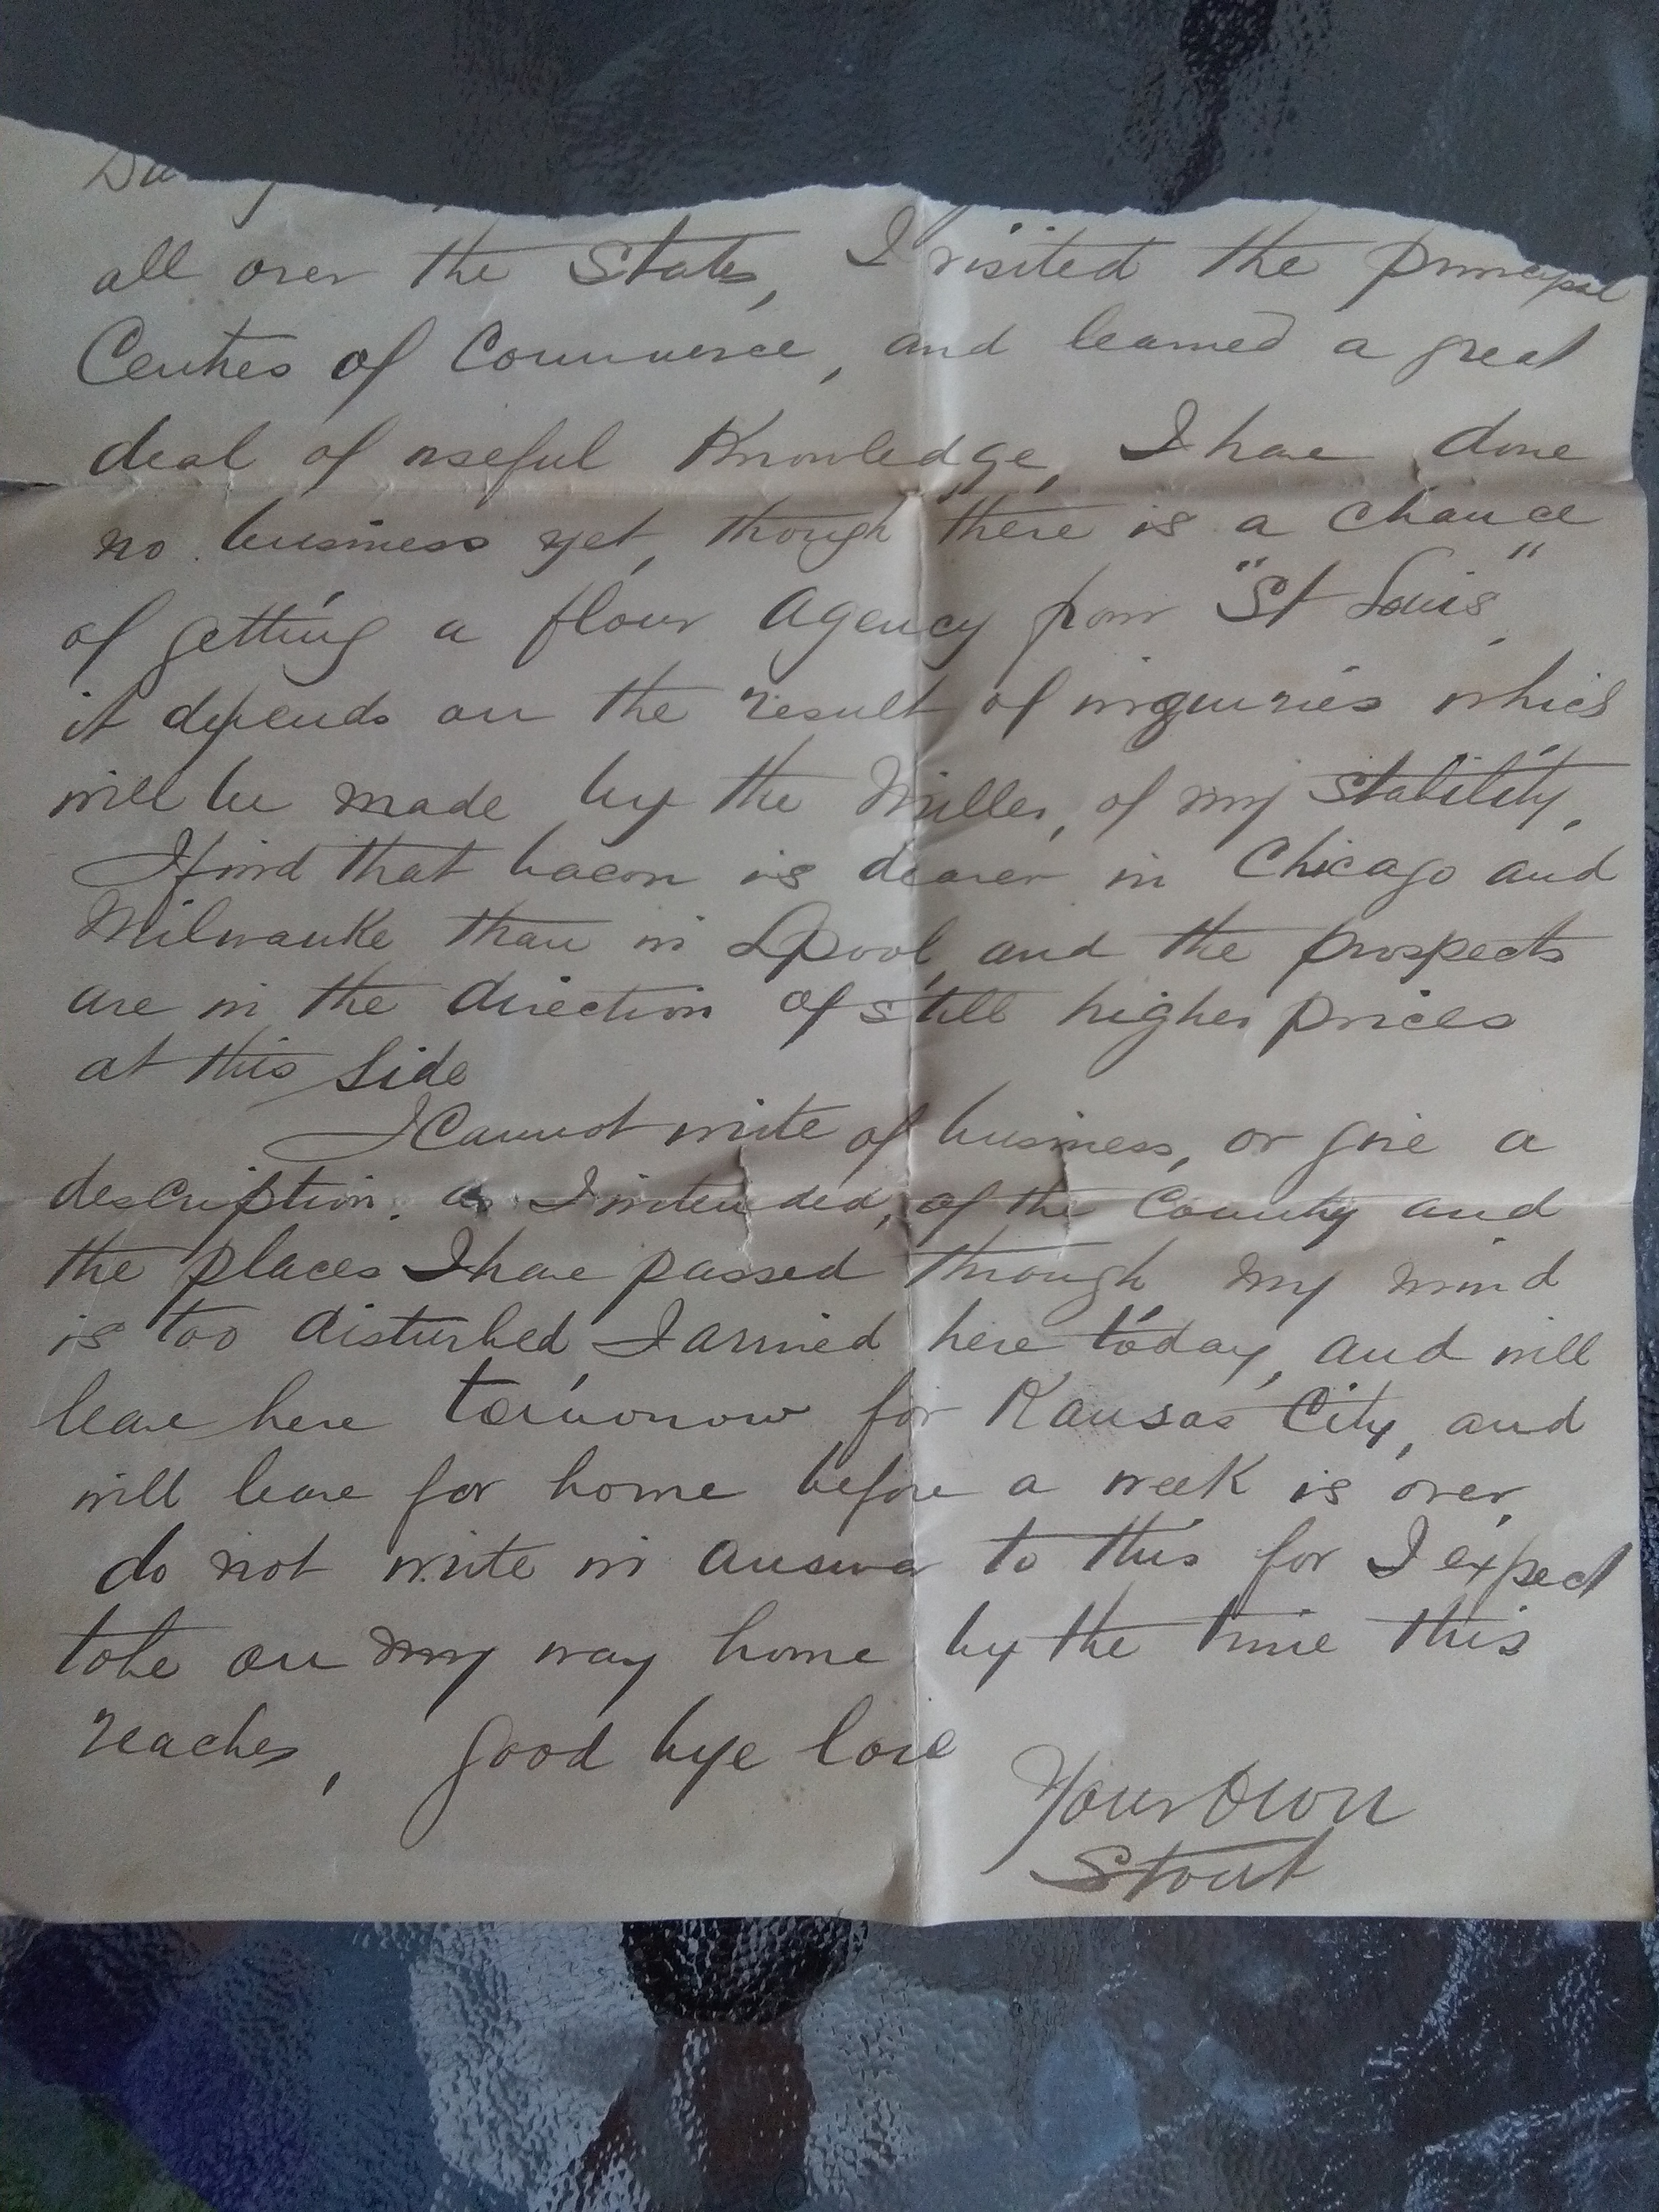 all over the States, I visited the principal
Centres of Commerce, and learned a great
deal of useful Knowledge, I have done
no business yet, though there is a chance
of getting a flour Agency from "St Louis",
it depends on the result of inquiries which
will be made by the Miller, of my stability,
I find that bacon is dearer in Chicago and
Milwauke than in Lpool, and the prospects
are in the direction of still higher prices
at this side
I Cannot write of business, or give a
description. as I intended, of the Country and
the places I have passed through my mind
is too disturbed I arrived here today, and will
leave here tomorrow for Kansas City, and
will leave for home before a week is over,
do not write in answer to this for I expect
to be on my way home by the time this
reaches, good bye love
Your Own
Stout